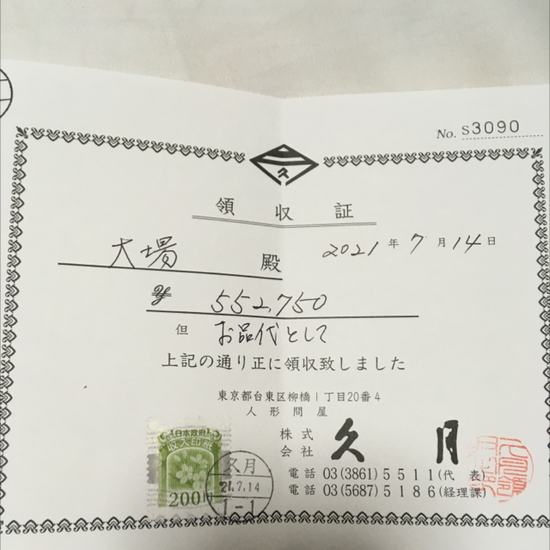 No. S3090
久
領収証
大場 殿
2021年7月14日
¥ 552,750
但 お品代として
上記の通り正に領収致しました
東京都台東区柳橋1丁目20番4
人形問屋
株式会社 久月
電話 03(3861)5511(代表)
電話 03(5687)5186(経理課)
日本政府
収入印紙
200円
久月
21.7.14
1-1